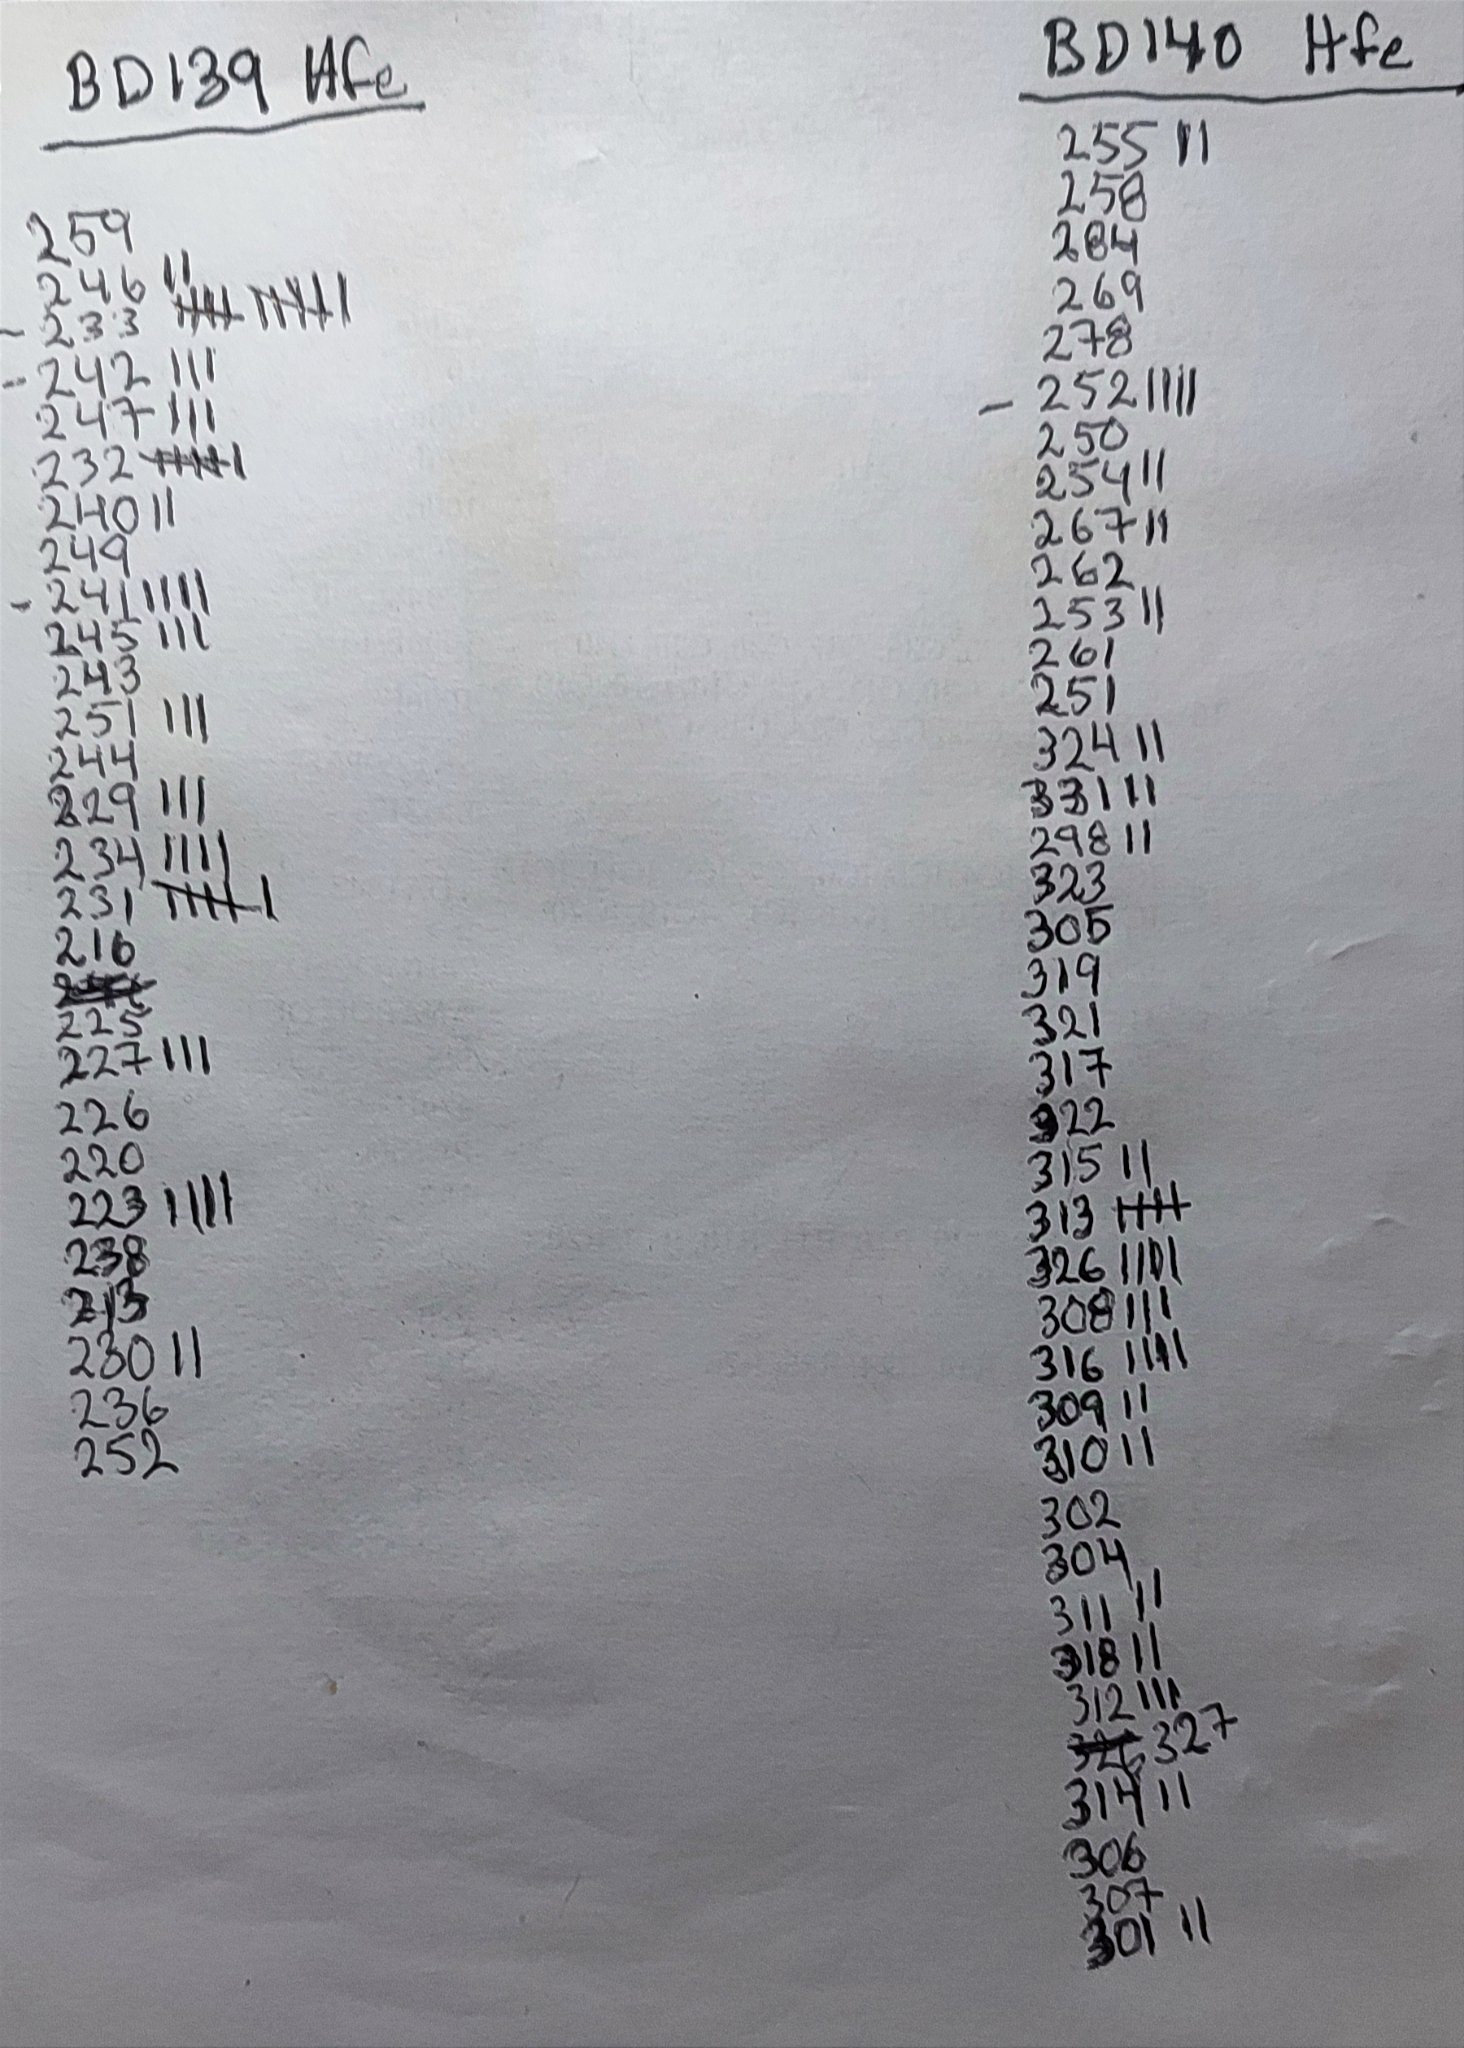 BD139 Hfe
259
246 ||
- 233 |||| ||||| |
- 242 |||
247 |||
232 |||||
240 ||
249
- 241 ||||
245 |||
243
251 |||
244
229 |||
234 ||||
231 ||||| |
216
225
227 |||
226
220
223 ||||
238
213
230 ||
236
252
BD140 Hfe
255 ||
258
284
269
278
- 252 ||||
250
254 ||
267 ||
262
253 ||
261
251
324 ||
331 ||
298 ||
323
305
319
321
317
322
315 ||
313 ||||
326 ||||
308 |||
316 ||||
309 ||
310 ||
302
304
311 ||
318 ||
312 |||
327
314 ||
306
307
301 ||